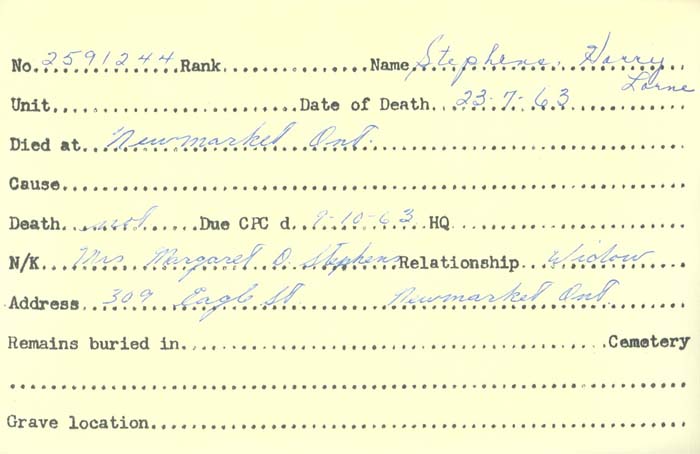 No. 2591244 Rank Name Stephens, Harry Lorne
Unit Date of Death 23-7-63
Died at Newmarket Ont.
Cause
Death not Due CPC d. 9-10-63 HQ
N/K Mrs Margaret D. Stephens Relationship Widow
Address 309 Eagle St. Newmarket Ont.
Remains buried in Cemetery
Grave location